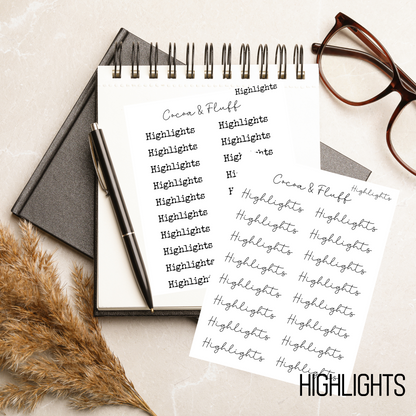 Highlights
Cocoa & Fluff
Highlights Highlights
Highlights Highlights
Highlights
Highlights
Highlights
Highlights
Highlights
Highlights
Highlights
Cocoa & Fluff
Highlights
Highlights Highlights
Highlights Highlights
Highlights Highlights
Highlights Highlights
Highlights Highlights
Highlights Highlights
Highlights Highlights
Highlights Highlights
HIGHLIGHTS